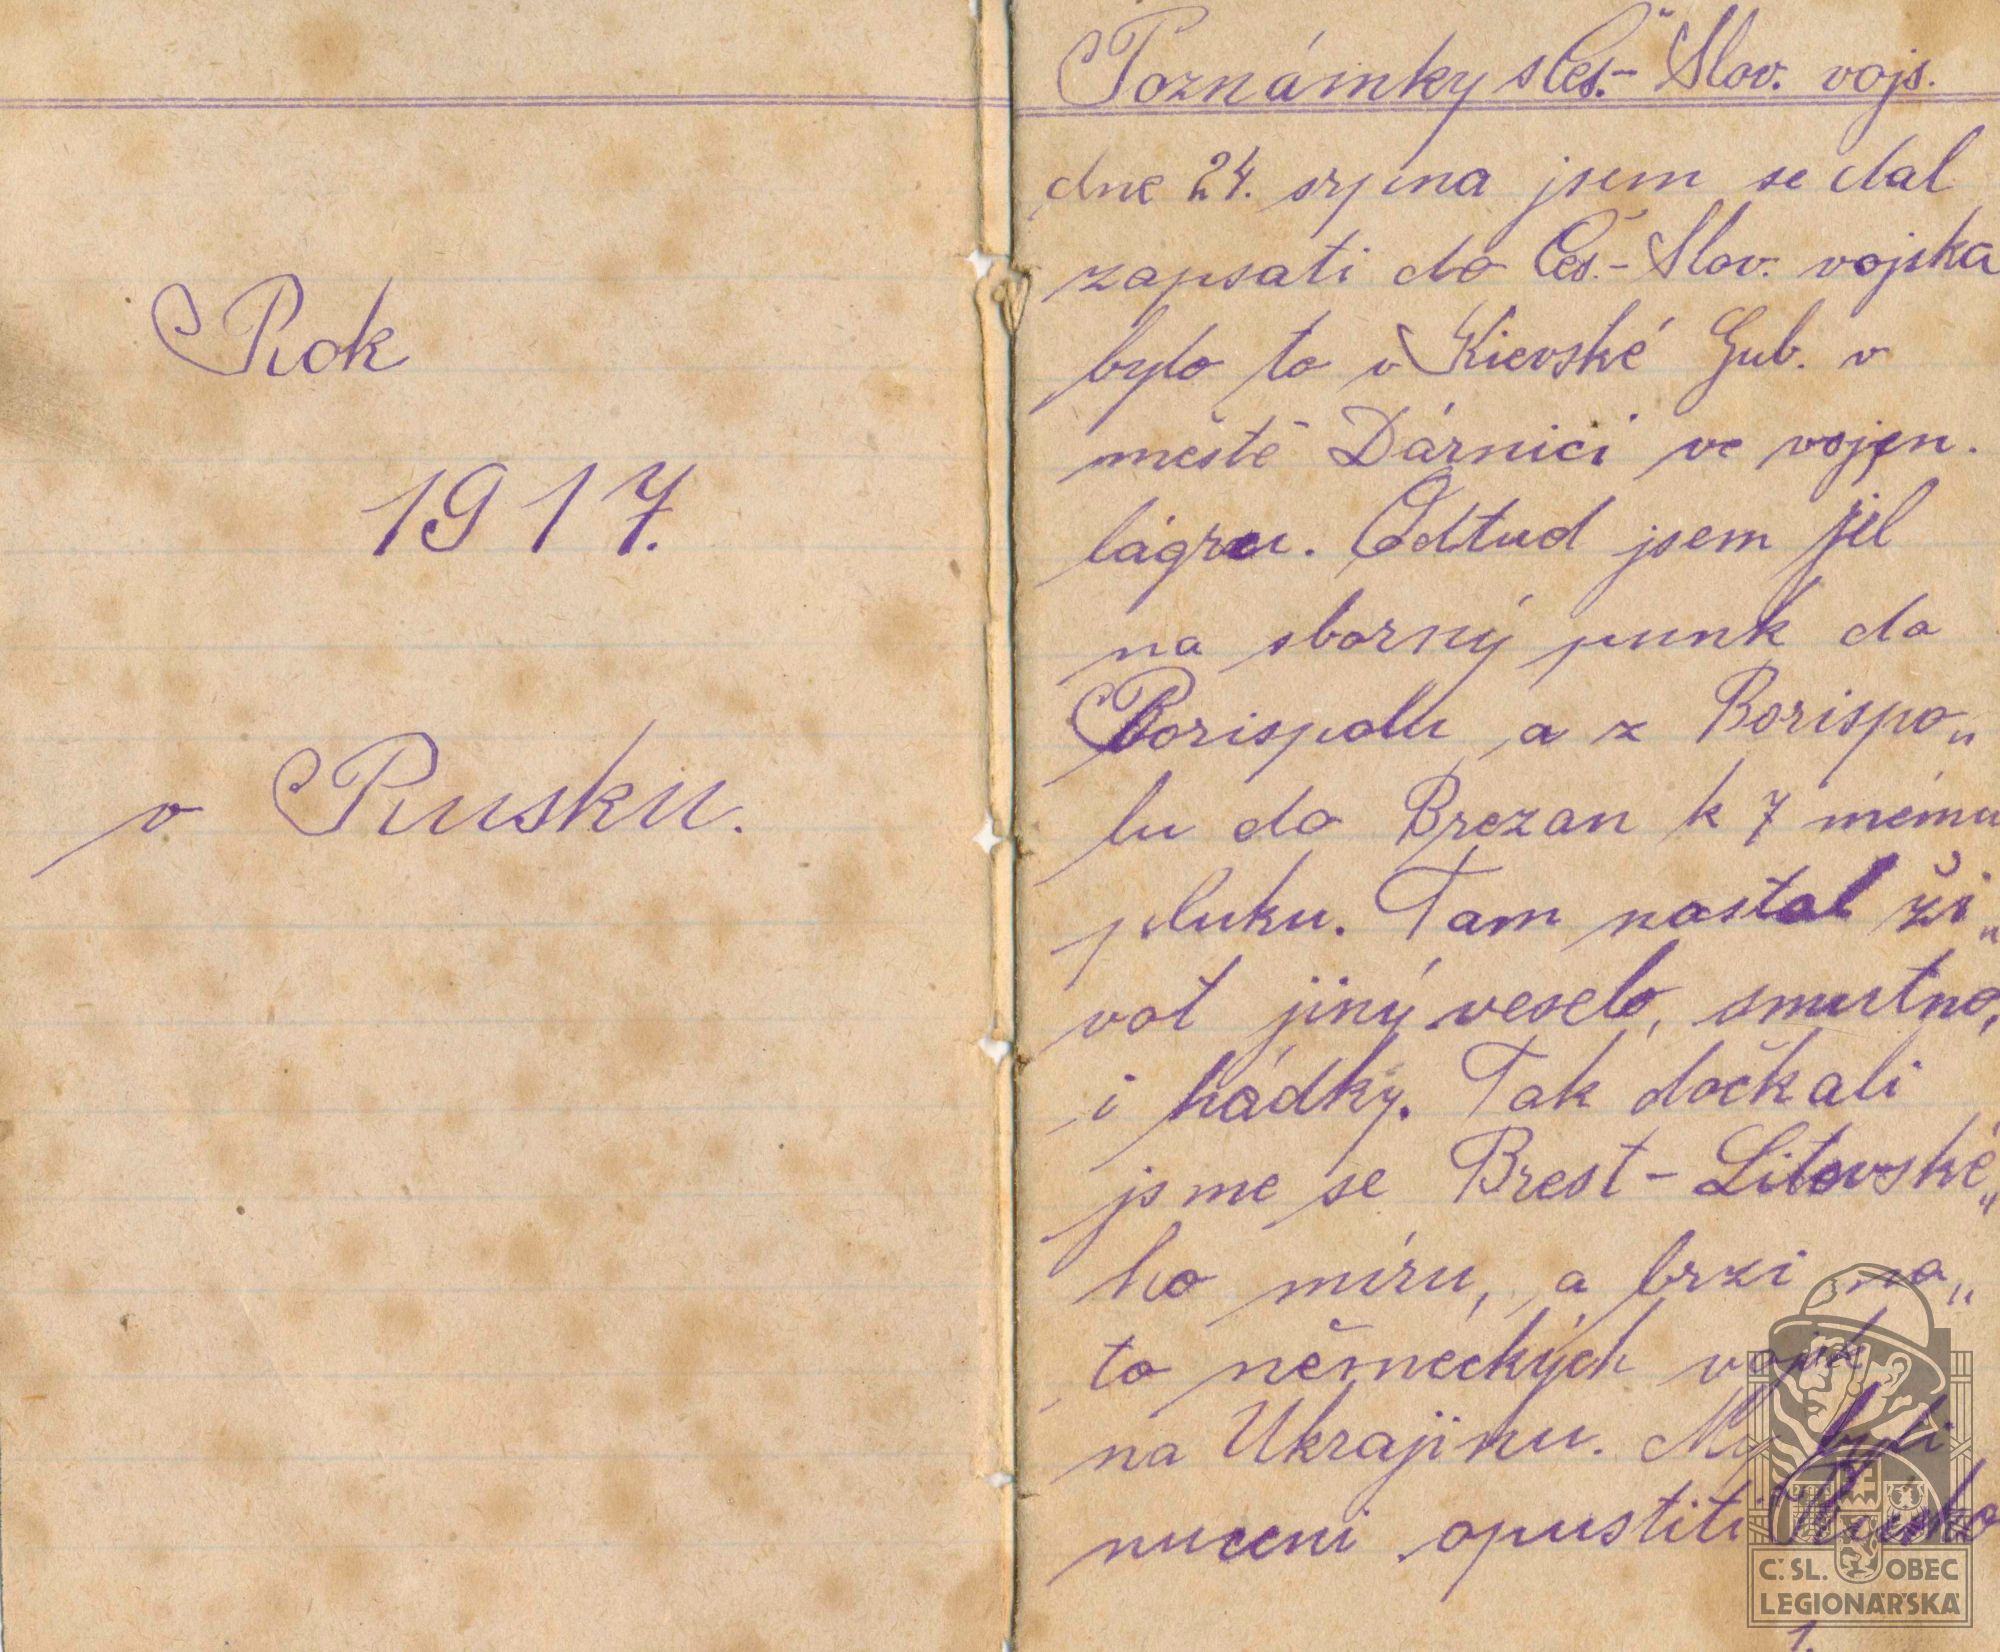 Rok
1917.
v Rusku.
Poznámky s Čes.- Slov. vojs.
dne 24. srpna jsem se dal
zapsati do Čes.- Slov. vojska
bylo to v Kievské Gub. v
městě Dárnici ve vojen.
lágru. Odtud jsem jel
na sborný punk do
Borispolu a z Borispo„
lu do Brezan k 7 mému
pluku. Tam nastal ži„
vot jiný veselo, smutno,
i hádky. Tak dočkali
jsme se Brest - Litovské„
ho míru, a brzi na„
to německých vojsk
na Ukrajinu. My byli
nuceni opustiti Rusko
1.
Č. SL. OBEC
LEGIONÁŘSKÁ